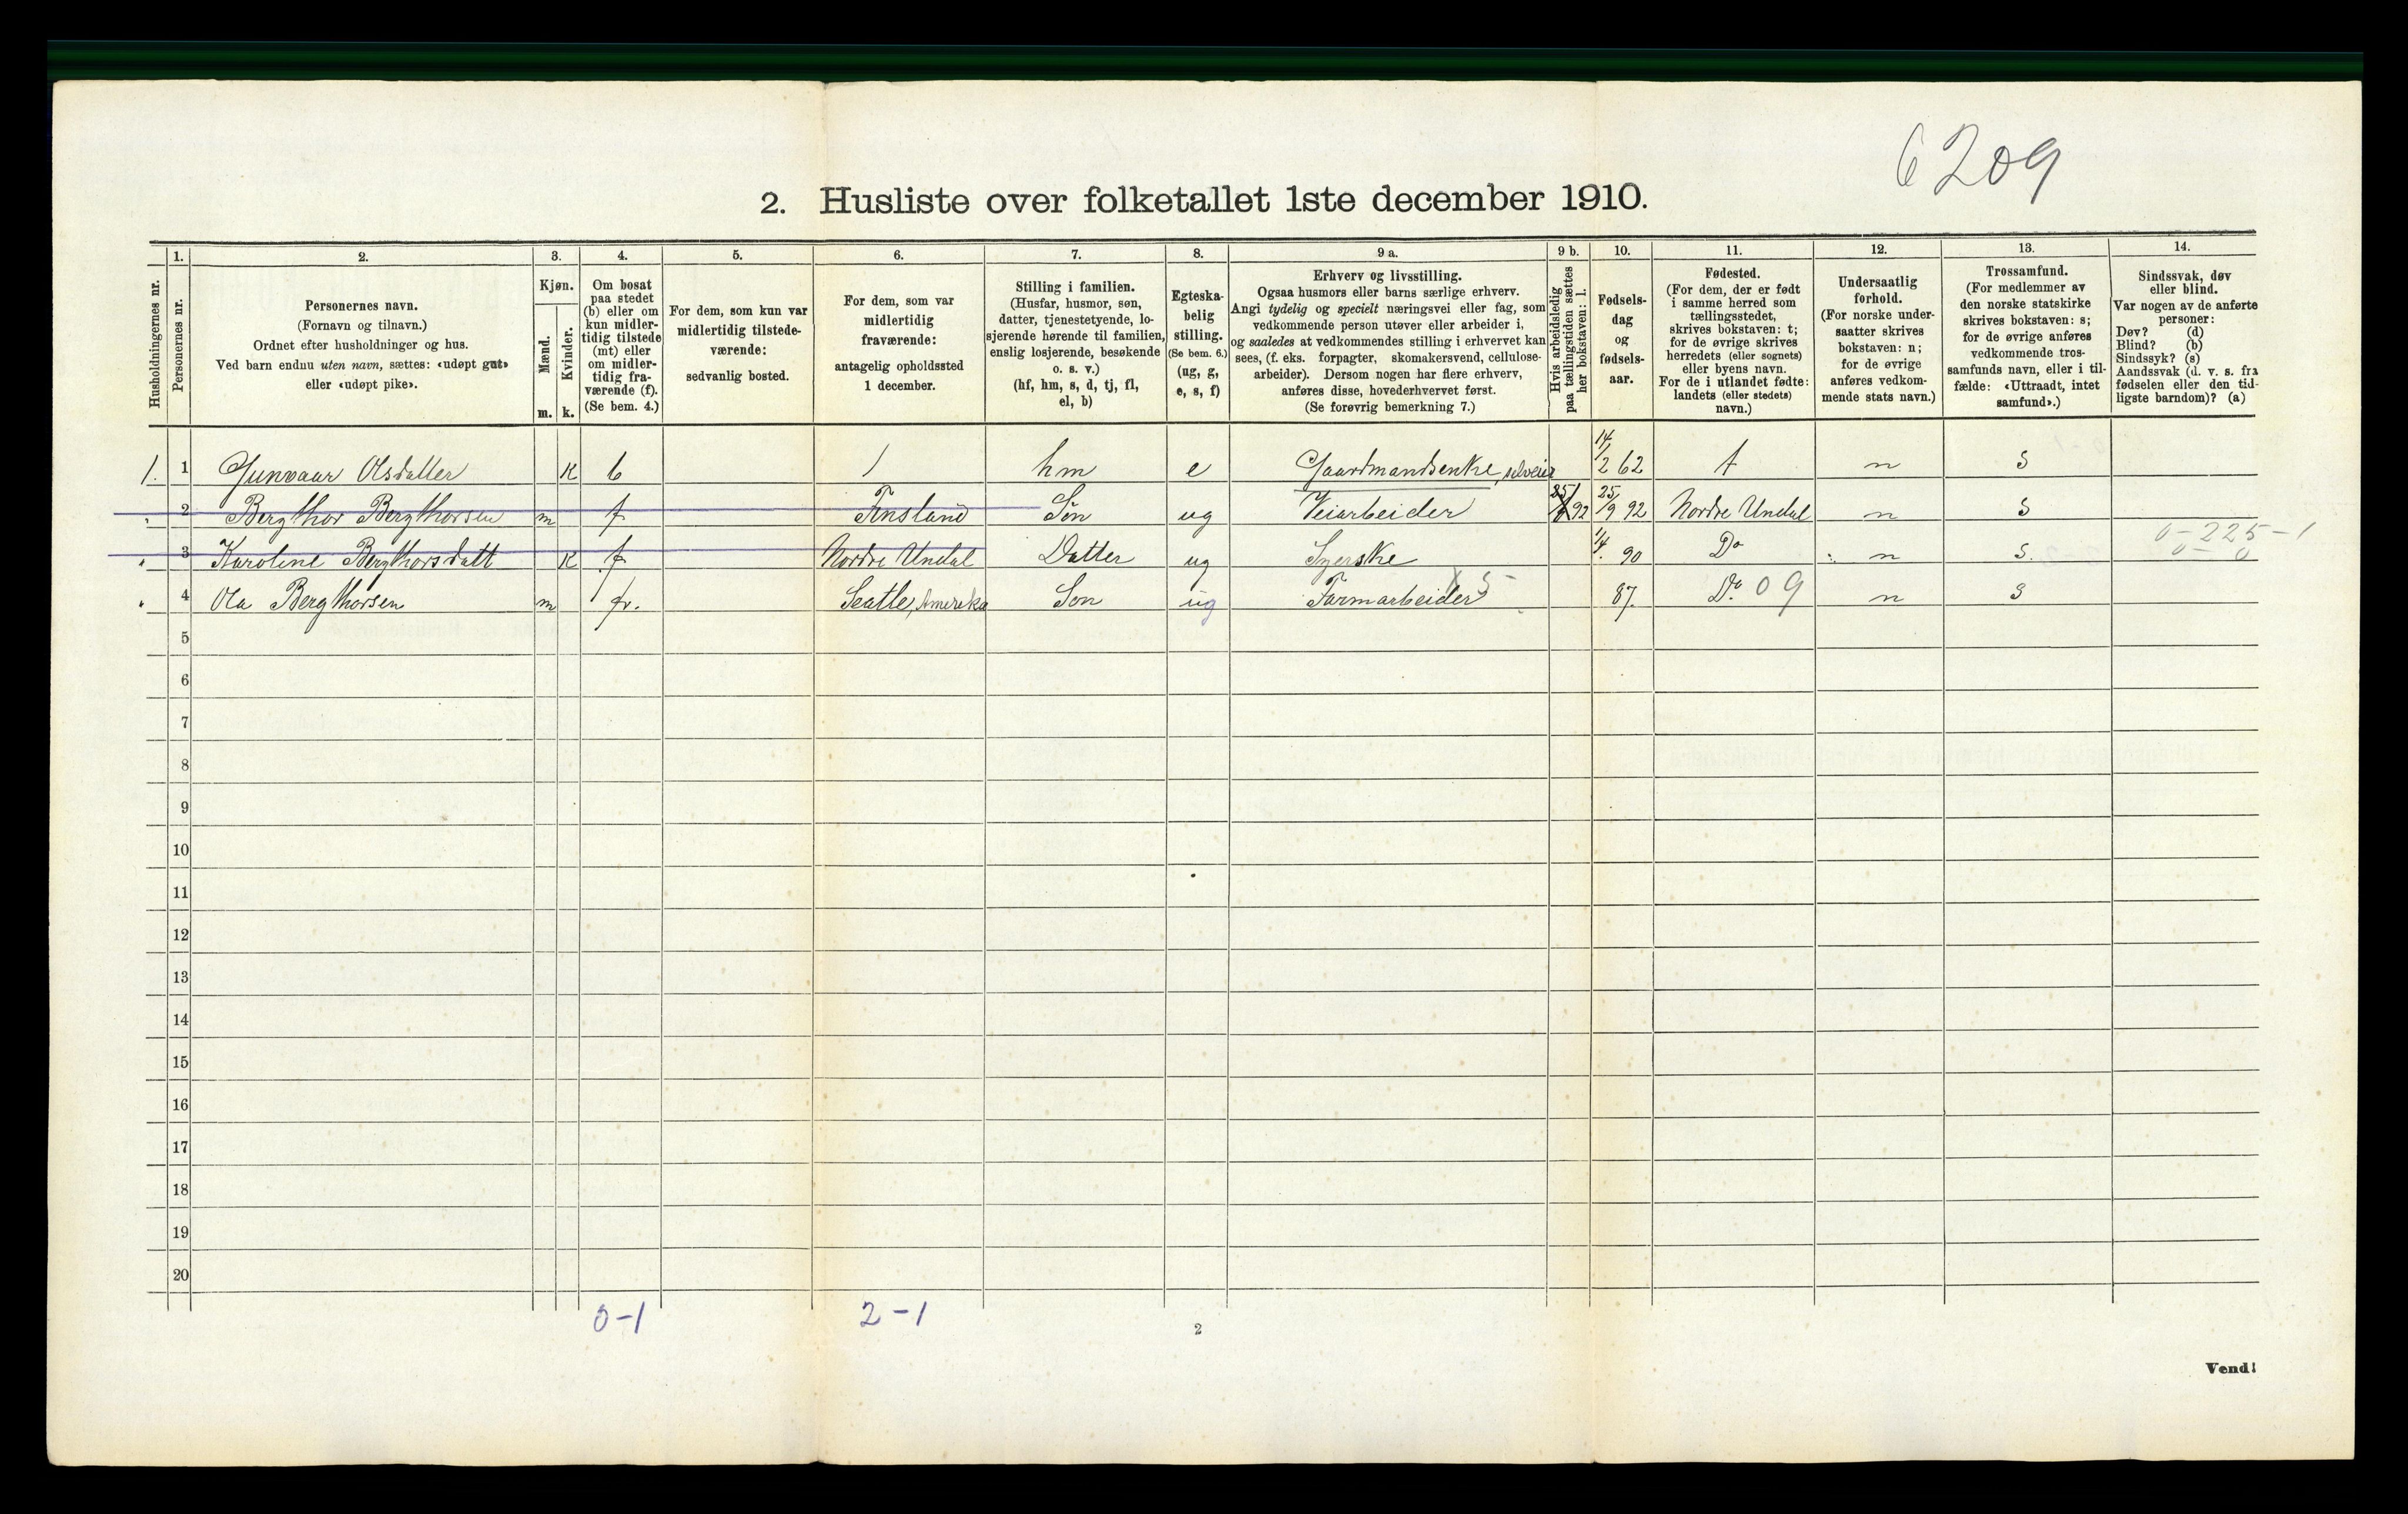 6209
2. Husliste over folketallet 1ste december 1910.
Husholdningernes nr.
1.
Personernes nr.
2.
Personernes navn.
(Fornavn og tilnavn.)
Ordnet efter husholdninger og hus.
Ved barn endnu uten navn, sættes: «udøpt gut»
eller «udøpt pike».
3.
Kjøn.
Mænd.
m.
Kvinder.
k.
4.
Om bosat
paa stedet
(b) eller om
kun midler-
tidig tilstede
(mt) eller
om midler-
tidig fra-
værende (f).
(Se bem. 4.)
5.
For dem, som kun var
midlertidig tilstede-
værende:
sedvanlig bosted.
6.
For dem, som var
midlertidig
fraværende:
antagelig opholdssted
1 december.
7.
Stilling i familien.
(Husfar, husmor, søn,
datter, tjenestetyende, lo-
sjerende hørende til familien,
enslig losjerende, besøkende
o. s. v.)
(hf, hm, s, d, tj, fl,
el, b)
8.
Egteska-
belig
stilling.
(Se bem. 6.)
(ug, g,
e, s, f)
9 a.
Erhverv og livsstilling.
Ogsaa husmors eller barns særlige erhverv.
Angi tydelig og specielt næringsvei eller fag, som
vedkommende person utøver eller arbeider i,
og saaledes at vedkommendes stilling i erhvervet kan
sees, (f. eks. forpagter, skomakersvend, cellulose-
arbeider). Dersom nogen har flere erhverv,
anføres disse, hovederhvervet først.
(Se forøvrig bemerkning 7.)
9 b.
Hvis arbeidsledig
paa tællingstiden sættes
her bokstaven: l.
10.
Fødsels-
dag
og
fødsels-
aar.
11.
Fødested.
(For dem, der er født
i samme herred som
tællingsstedet,
skrives bokstaven: t;
for de øvrige skrives
herredets (eller sognets)
eller byens navn.
For de i utlandet fødte:
landets (eller stedets)
navn.)
12.
Undersaatlig
forhold.
(For norske under-
saatter skrives
bokstaven: n;
for de øvrige
anføres vedkom-
mende stats navn.)
13.
Trossamfund.
(For medlemmer av
den norske statskirke
skrives bokstaven: s;
for de øvrige anføres
vedkommende tros-
samfunds navn, eller i til-
fælde: «Uttraadt, intet
samfund».)
14.
Sindssvak, døv
eller blind.
Var nogen av de anførte
personer:
Døv? (d)
Blind? (b)
Sindssyk? (s)
Aandssvak (d. v. s. fra
fødselen eller den tid-
ligste barndom)? (a)
1. 1 Gunvaar Olsdatter k b 1 hm e Gaardmandsenke, selveier 14/2 62 t n S
" 2 Bergthor Bergthorsen m f Finsland Søn ug Veiarbeider 25/9 92 25/9 92 Nordre Undal n S
" 3 Karoline Bergthorsdatt k f Nordre Undal Datter ug Syerske 90 Do n S. 0-225-1
0-0
" 4 Ola Bergthorsen m fr. Seatle, Amerika Son ug Farmarbeider x5- 87. Do. 09 n S
5
6
7
8
9
10
11
12
13
14
15
16
17
18
19
20
0-1 2-1
2
Vend!